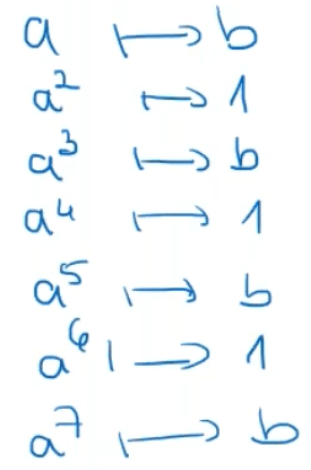 a ↦ b
a² ↦ 1
a³ ↦ b
a⁴ ↦ 1
a⁵ ↦ b
a⁶ ↦ 1
a⁷ ↦ b